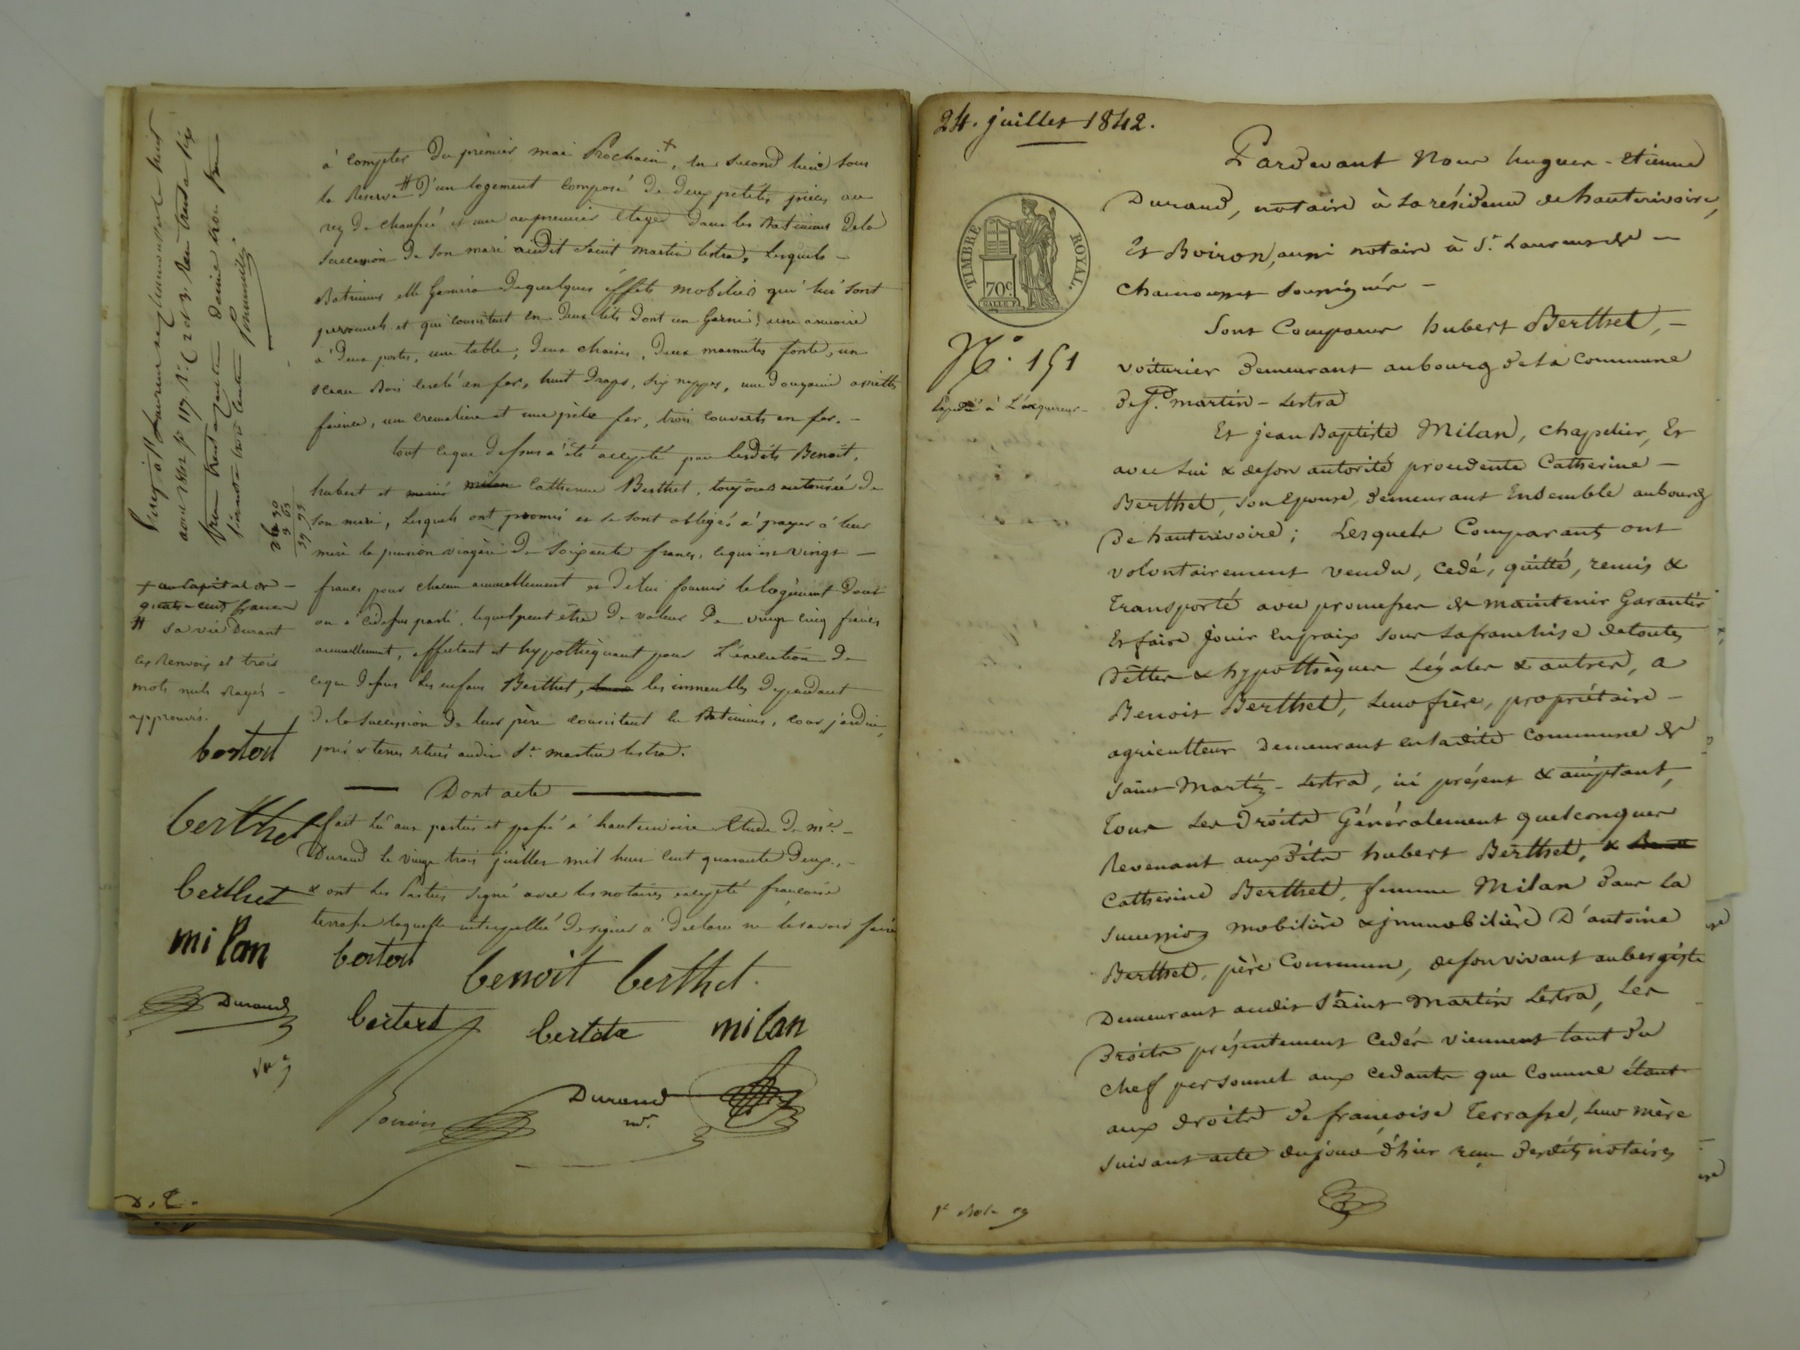 à compter du premier mai Prochain +, le second lieu sous
la Reserve # D'un logement composé de deux petites pièces au
rez de chaussé et une au premier étage dans les Batimens dela
succession de son mari audit Saint martin lestra, lesquels —
Batimens elle Garnira de quelques éffets mobiliers qui lui sont
personnels et qui consistent en deux lits dont un Garni, une armoire
à deux portes, une table, deux chaises, deux marmites fonte, un
sceau Bois cerclé en fer, huit draps, six nappes, une douzaine assiettes
faience, une cremaliere et une pèle fer, trois couverts en fer. —
tout ce que dessus a été accepté par lesdits Benoit,
hubert et catherine Berthet, toujours autorisée de
son mari, Lesquels ont promis et se sont obligés à payer à leur
mère la pension viagère de soixante francs, ce qui est vingt —
francs pour chacun annuellement et de lui fournir le logement dont
on a cidessus parlé, lequel peut être de valeur de vingt cinq francs
annuellement, affectant et hypothéquant pour L'exécution de
ce que dessus les enfans Berthet, les immeubles dependant
de la succession de leur père consistent en Batimens, cour, jardin,
prés & terres situés audit St. martin lestra.
— Dont acte —
fait Lû aux parties et passé à hauterivoire Etude de me. —
Durand le vingt trois juillet mil huit cent quarante deux, —
& ont les Parties signé avec les notaires excepté françoise
terrasse laquelle interpellée de signer a déclaré ne le savoir faire
+ au capital de —
quatre cent francs
# sa vie Durant
les Renvois et trois
mots nuls rayés —
approuvés.
bertert
berthet
berthet
milan
bertert
benoit berthet.
Durand
bertert
bertete
milan
Boiron
Durand
nre.
D. E.
24. juillet 1842.
TIMBRE ROYAL.
70c.
N°. 151
Expédié à L'acquereur —
Pardevant Nous hugues - etienne
Durand, notaire à La résidence de hauterivoire,
Et Boiron, aussi notaire à St. Laurent de —
chamousset soussignés —
Sont Comparus hubert Berthet, —
voiturier demeurant au bourg de la commune
de St. martin - Lestra
Et jean Baptiste Milan, chapelier, Et
avec Lui & de son autorité procedente Catherine —
Berthet, son Epouse, demeurant Ensemble au bourg
de hauterivoire ; Lesquels Comparants ont
volontairement vendu, cedé, quitté, remis &
transporté avec promesses de maintenir Garantir
Et faire jouir En paix sous La franchise de toutes
dettes & hypothèques Légales & autres, a
Benoit Berthet, Leur frère, propriétaire —
agriculteur demeurant en ladite commune de
Saint Martin - Lestra, ici présent & acceptant,
tous Les Droits Généralement quelconques
Revenant aux dits hubert Berthet, &
Catherine Berthet, femme Milan dans La
succession mobilière & jmmobilière D'antoine
Berthet, père Commun, de son vivant aubergiste
demeurant audit Saint Martin Lestra, Les
Droits présentement cedés viennent tant du
chef personnel aux cedants que Comme étant
aux droits de françoise Terrasse, leur mère
suivant acte du jour d'hier reçu desdits notaires